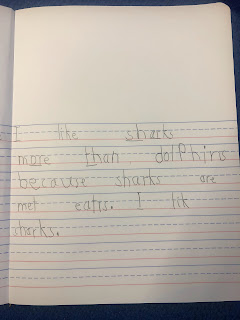 I like sharks
more than dolphins
because sharks are
met eatrs. I lik
sharks.